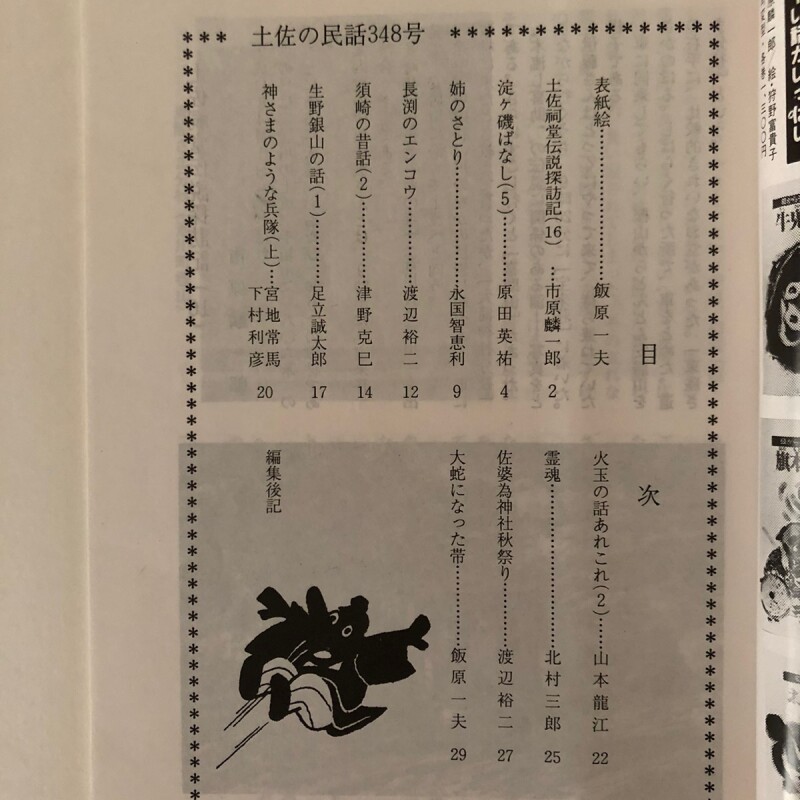 土佐の民話348号
目次
表紙絵…………飯原一夫
土佐祠堂伝説探訪記(16) 市原麟一郎 2
淀ヶ磯ばなし(5)…………原田英祐 4
姉のさとり…………永国智恵利 9
長渕のエンコウ…………渡辺裕二 12
須崎の昔話(2)…………津野克巳 14
生野銀山の話(1)…………足立誠太郎 17
神さまのような兵隊(上)…宮地常馬
下村利彦 20
火玉の話あれこれ(2)……山本龍江 22
霊魂…………北村三郎 25
佐婆為神社秋祭り…………渡辺裕二 27
大蛇になった帯…………飯原一夫 29
編集後記
絵・狩野富貴子